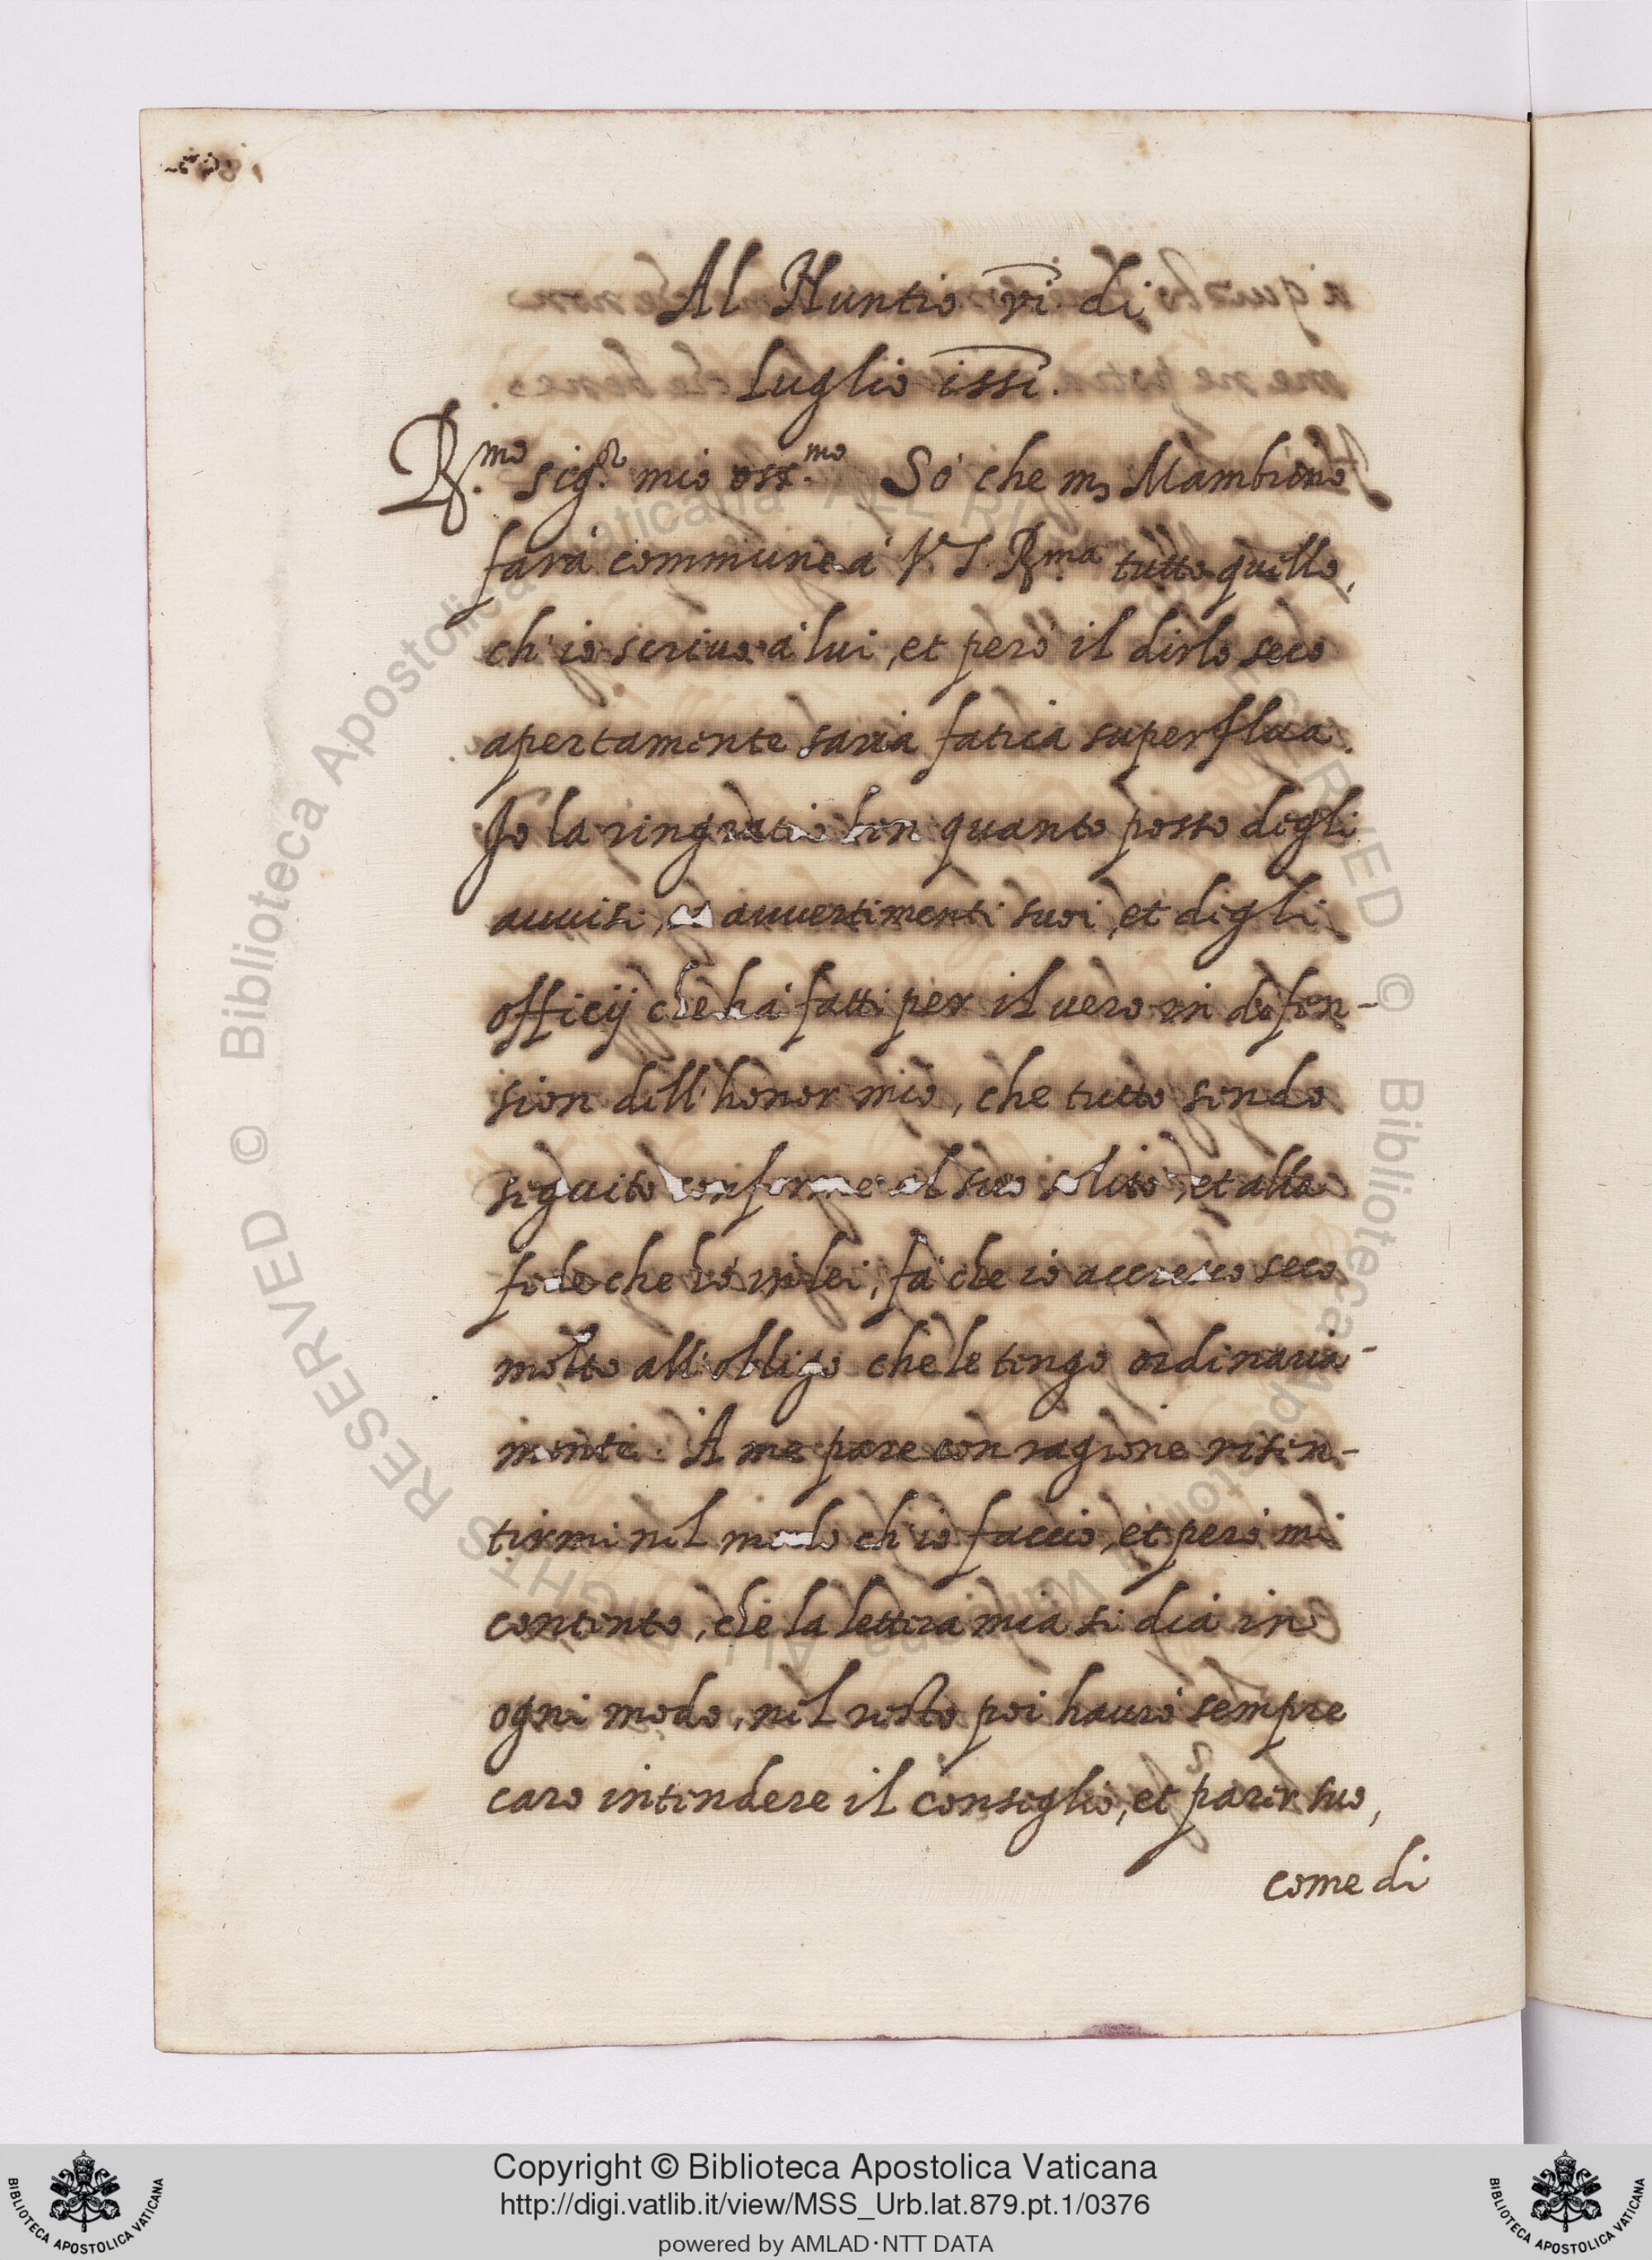 Al Nuntio vi. di
Luglio 1551.
R.mo Sig.r mio oss.mo So che m. Mambrino
farà commune à V. S. R.ma tutto quello,
ch'io scriuo à lui, et però il dirlo seco
apertamente saria fatica superflua.
Io la ringratio ben quanto posso degli
auuisi, et auuertimenti suoi, et degli
officij che hà fatti per il uero in defen-
sion dell'honor mio, che tutto sendo
seguito conforme al suo solito, et alla
fede che hò in lei, fà che io accresco seco
molto all'obligo che le tengo ordinaria-
mente. A me pare con ragione risen-
tirmi nel modo ch'io faccio, et però mi
contento, che la lettera mia si dia in
ogni modo, nel resto poi haurò sempre
caro intendere il conseglio, et parer suo,
come di
Copyright © Biblioteca Apostolica Vaticana
http://digi.vatlib.it/view/MSS_Urb.lat.879.pt.1/0376
powered by AMLAD·NTT DATA
BIBLIOTECA APOSTOLICA VATICANA
BIBLIOTECA APOSTOLICA VATICANA